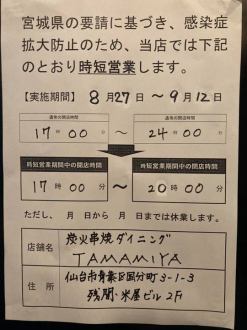 宮城県の要請に基づき、感染症
拡大防止のため、当店では下記
のとおり時短営業します。
【実施期間】 8月27日 ～ 9月12日
通常の開店時間 通常の閉店時間
17時00分 ～ 24時00分
時短営業期間中の開店時間 時短営業期間中の閉店時間
17時00分 ～ 20時00分
ただし、 月 日から 月 日までは休業します。
店舗名 炭火串焼ダイニング
TAMAMIYA
住所 仙台市青葉区国分町3-1-3
米屋ビル2F